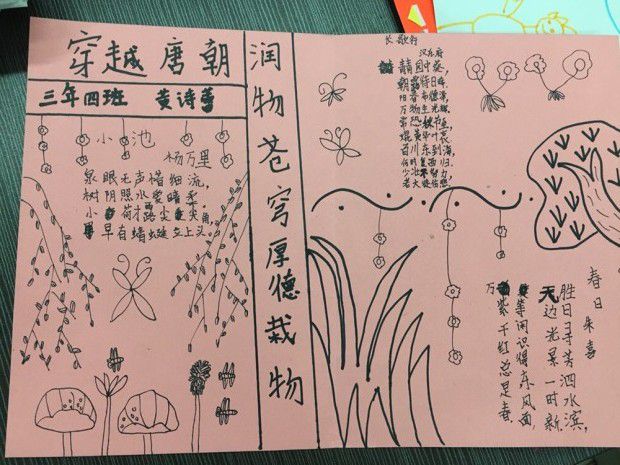 穿越唐朝
三年四班 黄诗蕾
小池
杨万里
泉眼无声惜细流,
树阴照水爱晴柔。
小荷才露尖尖角,
早有蜻蜓立上头。
润物苍穹厚德栽物
长歌行
汉乐府
青青园中葵,
朝露待日晞。
阳春布德泽,
万物生光辉。
常恐秋节至,
焜黄华叶衰。
百川东到海,
何时复西归
少壮不努力
老大徒伤悲
春日 朱喜
胜日寻芳泗水滨,
无边光景一时新。
等闲识得东风面,
万紫千红总是春。